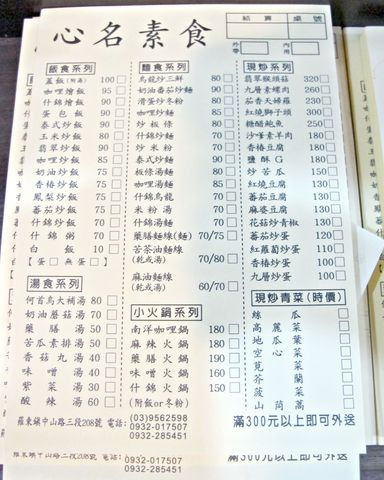 心名素食
結算 桌號
外帶 內用
飯食系列
蓋飯(附湯) 100
咖哩燴飯 95
什錦燴飯 90
蛋包飯 90
泰式炒飯 90
玉米炒飯 80
翡翠炒飯 90
咖哩炒飯 85
奶油炒飯 75
香椿炒飯 75
鳳梨炒飯 75
蕃茄炒飯 75
什錦炒飯 75
什錦粥 75
白飯 10
【蛋 無蛋】
湯食系列
何首烏大補湯 80
奶油蘑菇湯 70
藥膳湯 50
苦瓜素排湯 50
香菇丸湯 40
味噌湯 40
紫菜湯 30
酸辣湯 60
麵食系列
烏龍炒三鮮 80
奶油番茄炒麵 90
滑蛋炒冬粉 80
咖哩炒麵 85
炒板條 80
什錦炒麵 80
炒米粉 70
泰式炒麵 90
板條湯麵 80
咖哩湯麵 85
什錦烏龍 85
米粉湯 70
什錦湯麵 80
藥膳麵線(麵) 70/75
苦茶油麵線
(乾或湯) 70/80
麻油麵線
(乾或湯) 60/70
小火鍋系列
南洋咖哩鍋 180
麻辣火鍋 180
藥膳火鍋 190
味噌火鍋 160
什錦火鍋 150
(附飯or冬粉)
現炒系列
翡翠猴頭菇 320
九層素螺肉 260
茄香天婦羅 230
紅燒獅子頭 300
糖醋鮑魚 250
沙嗲素羊肉 180
香椿豆腐 180
鹽酥G 180
炒苦瓜 150
紅燒豆腐 130
蕃茄豆腐 130
麻婆豆腐 130
花菇炒青椒 130
蕃茄炒蛋 120
紅蘿蔔炒蛋 110
香椿炒蛋 100
九層炒蛋 100
現炒青菜(時價)
絲瓜
高麗菜
地瓜葉
空心菜
莧菜
芥蘭
菠菜
山茼蒿
羅東鎮中山路三段208號 電話: (03)9562598
0932-017507
0932-285451
滿300元以上即可外送
羅東鎮中山路三段208號 電話: 0932-017507
0932-285451
滿300元以上即可外送